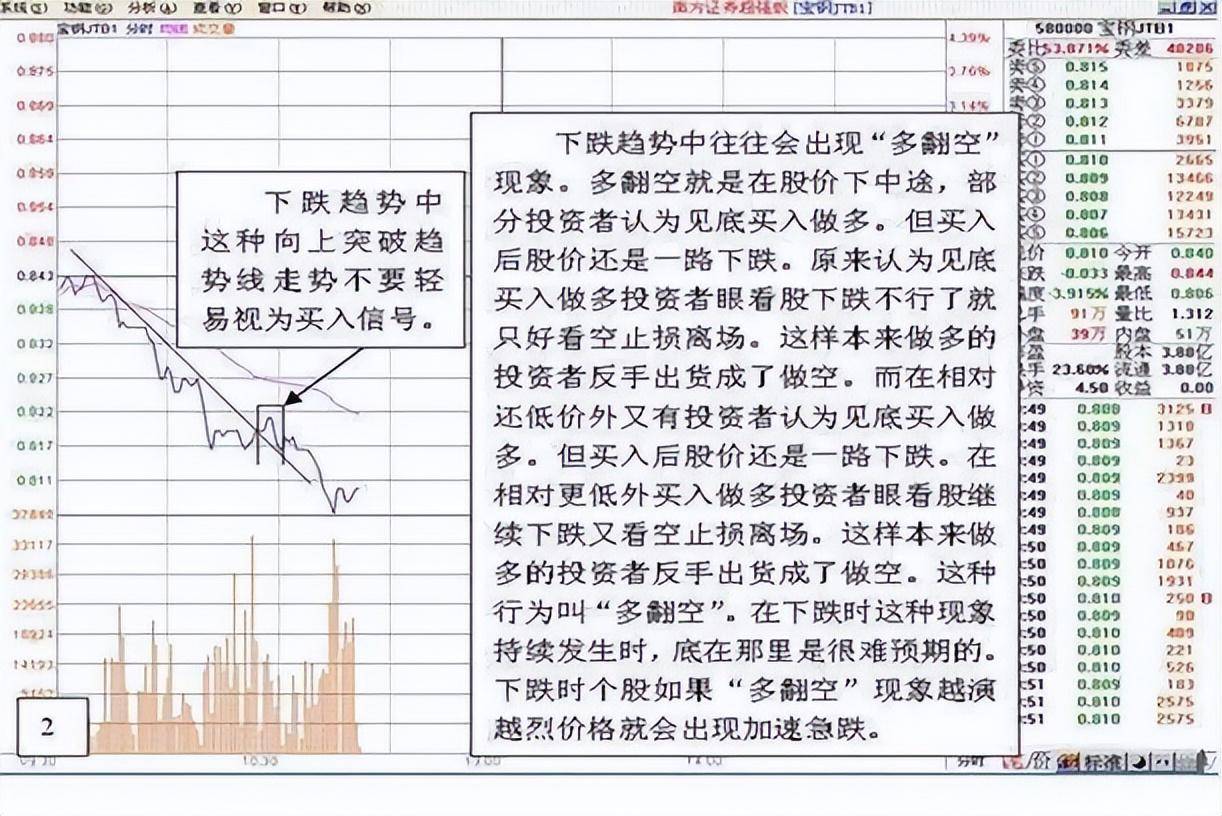 分析
窗口
宝钢JTB1 分时
580000 宝钢JTB1
53.871% 委差 40286
⑤ 0.815 1075
④ 0.814 1256
③ 0.813 3379
② 0.812 6787
① 0.811 3951
① 0.810 2665
② 0.809 13466
③ 0.808 12249
④ 0.807 13431
⑤ 0.806 15723
0.810 今开 0.840
-0.033 最高 0.844
-3.915% 最低 0.806
91万 量比 1.312
39万 内盘 51万
股本 3.88亿
23.60% 流通 3.88亿
4.50 收益 0.00
:49 0.808 3125
:49 0.809 1310
:49 0.809 1367
:49 0.809 23
:49 0.809 2399
:49 0.809 40
:49 0.808 937
:49 0.809 186
:50 0.809 457
:50 0.809 1076
:50 0.809 1931
:50 0.810 250
:50 0.809 90
:50 0.810 409
:50 0.810 221
:50 0.810 526
:51 0.809 183
:51 0.810 2575
:51 0.810 2575
0.843
0.838
0.832
0.827
0.822
0.817
0.811
下跌趋势中
这种向上突破趋
势线走势不要轻
易视为买入信号。
下跌趋势中往往会出现“多翻空”
现象。多翻空就是在股价下中途，部
分投资者认为见底买入做多。但买入
后股价还是一路下跌。原来认为见底
买入做多投资者眼看股下跌不行了就
只好看空止损离场。这样本来做多的
投资者反手出货成了做空。而在相对
还低价外又有投资者认为见底买入做
多。但买入后股价还是一路下跌。在
相对更低外买入做多投资者眼看股继
续下跌又看空止损离场。这样本来做
多的投资者反手出货成了做空。这种
行为叫“多翻空”。在下跌时这种现象
持续发生时，底在那里是很难预期的。
下跌时个股如果“多翻空”现象越演
越烈价格就会出现加速急跌。
2
分时
标准